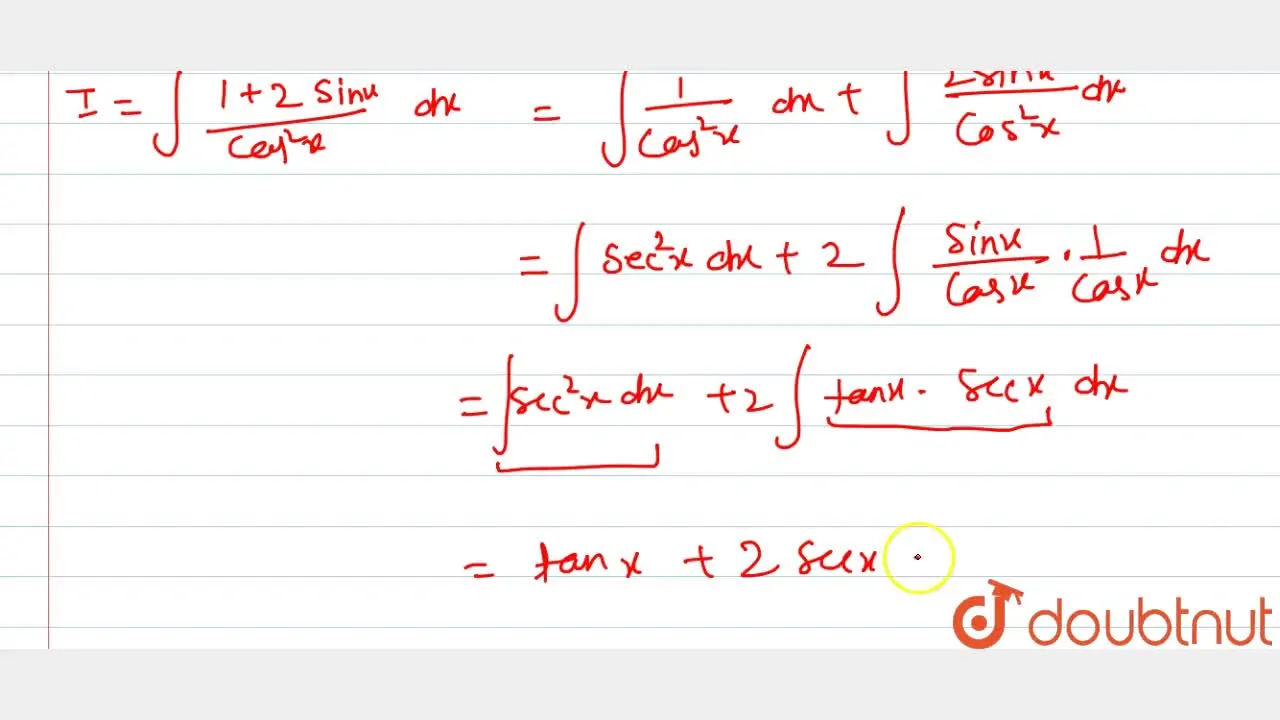 I = ∫ (1 + 2 sinx)/(cos²x) dx = ∫ 1/(cos²x) dx + ∫ (2 sinx)/(cos²x) dx
= ∫ sec²x dx + 2 ∫ (sinx)/(cosx) · 1/(cosx) dx
= ∫ sec²x dx + 2 ∫ tanx · secx dx
= tanx + 2 secx
doubtnut